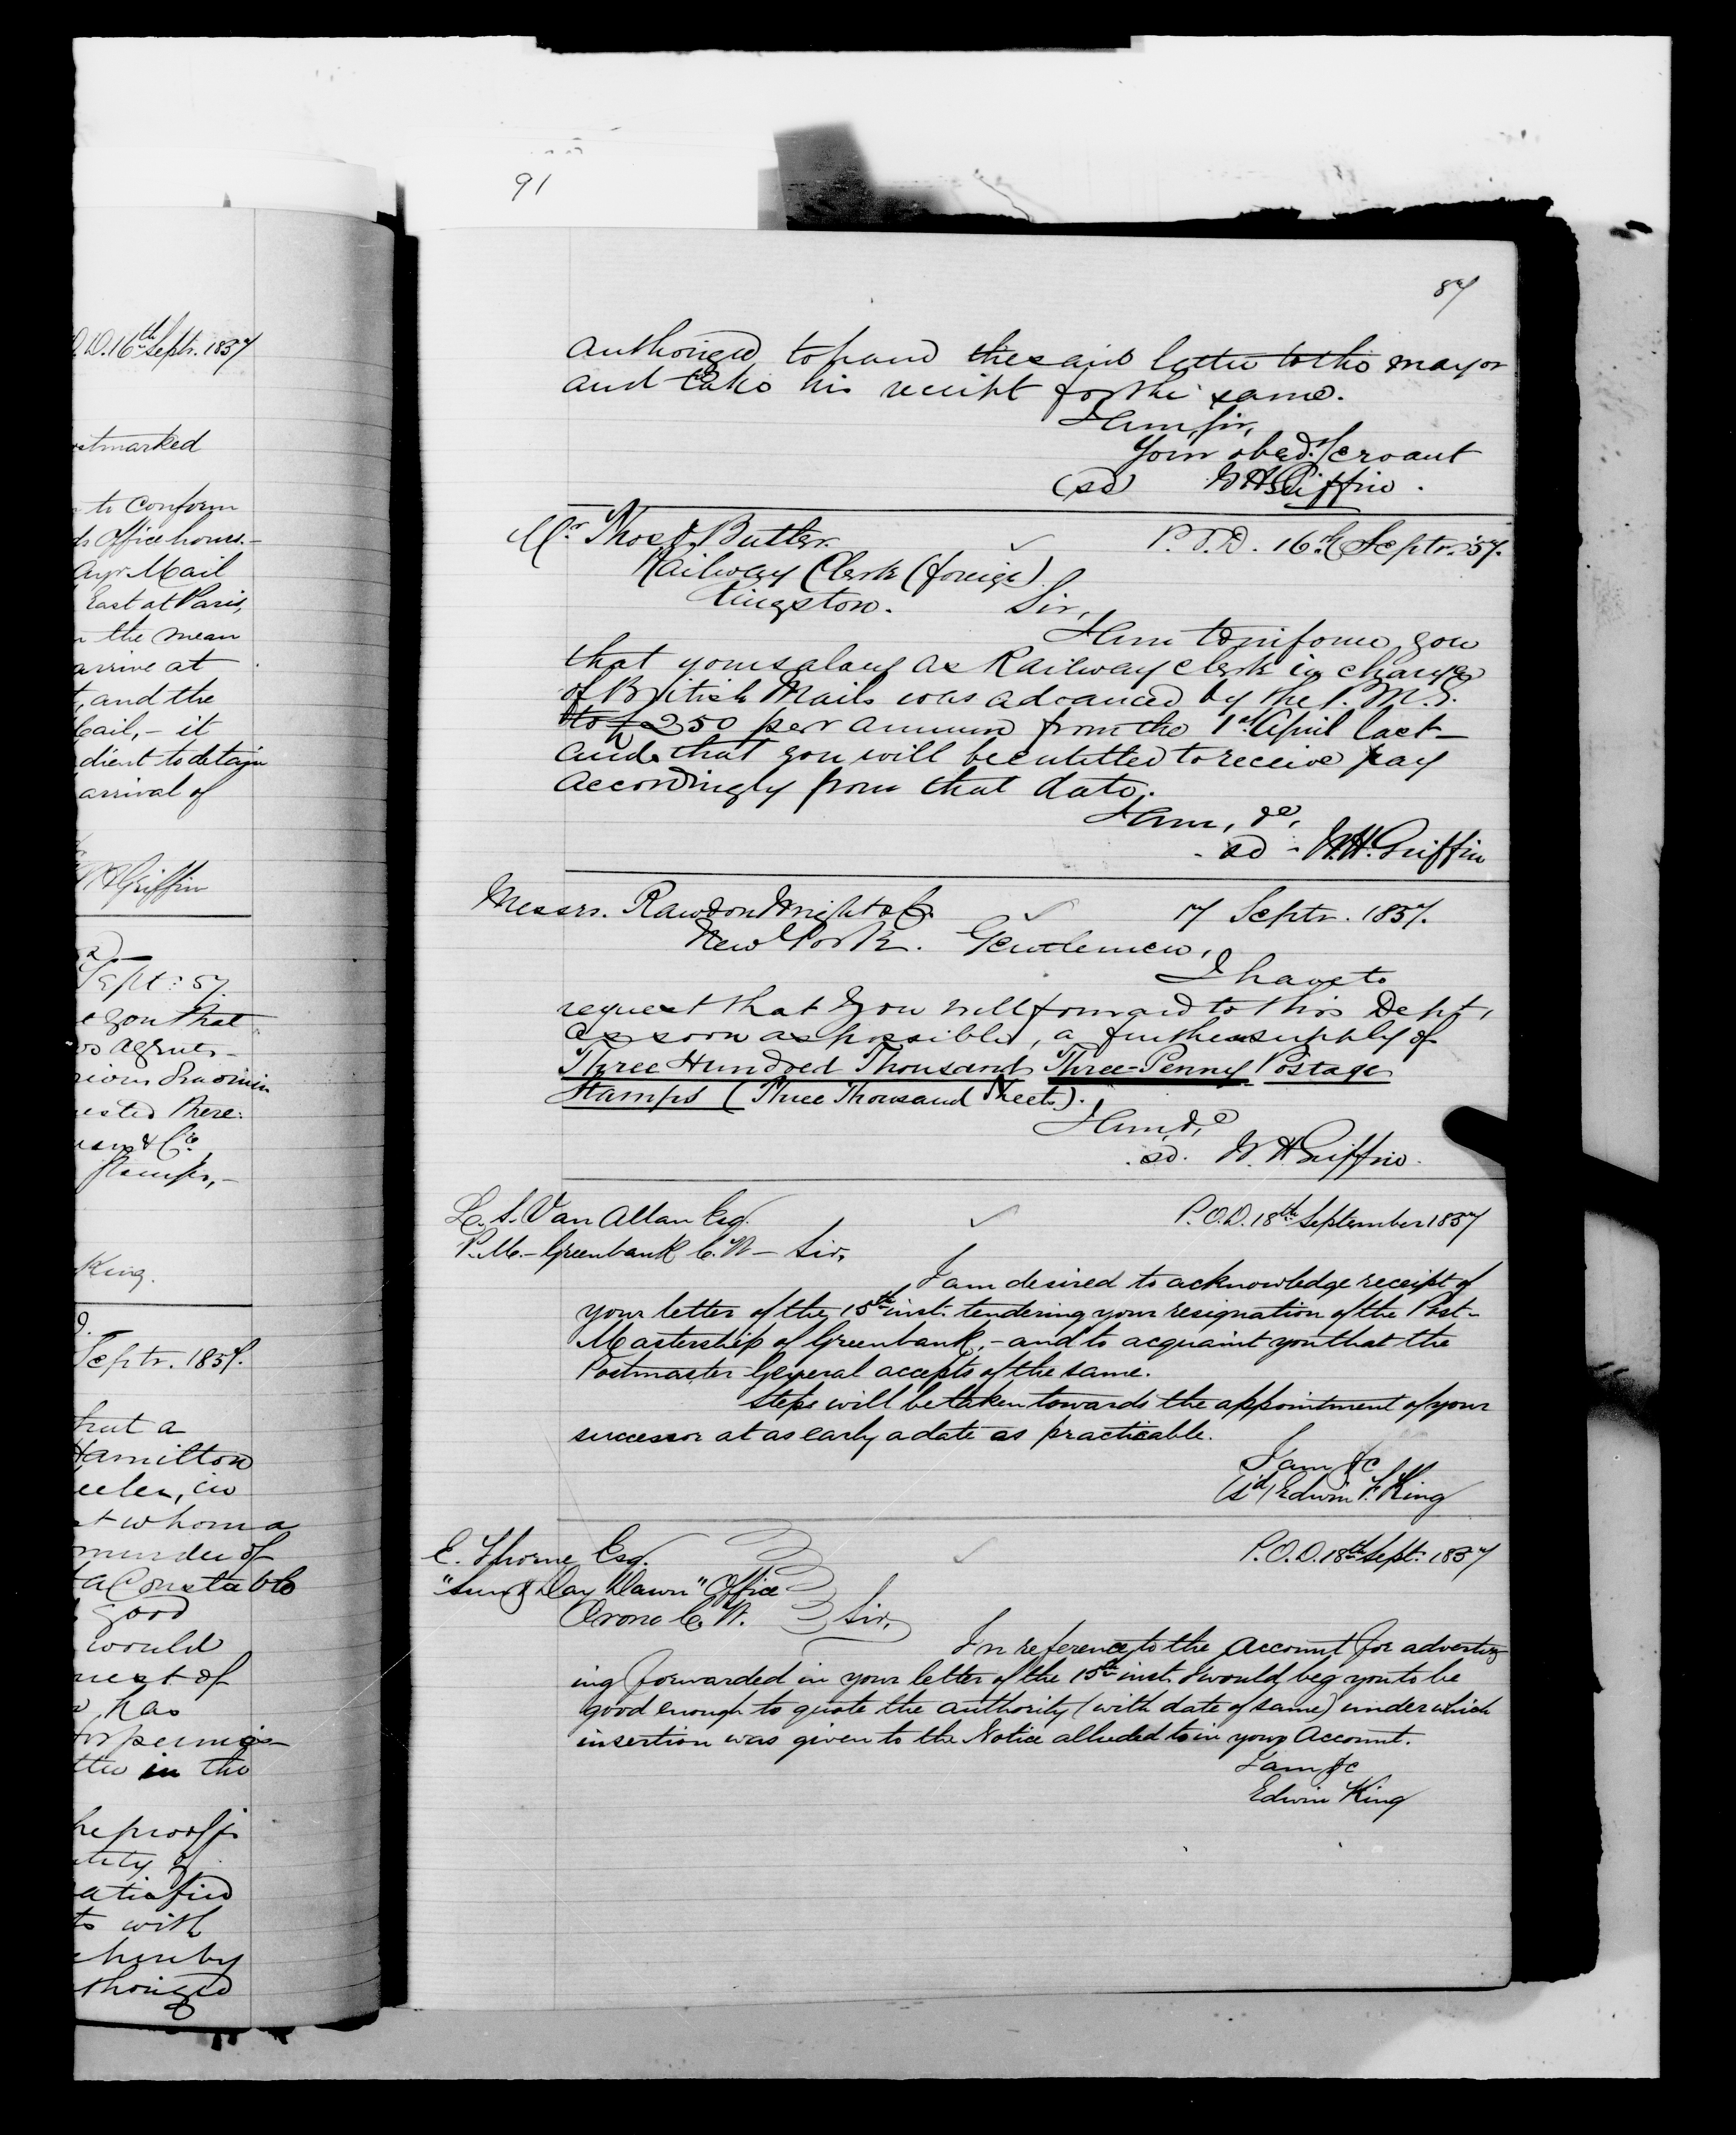 91
D. 16th Septr. 1857
stmarked
to conform
Office hours.-
Ayr Mail
East at Paris,
the mean
arrive at
, and the
ail, - it
dient to detain
arrival of
WH Griffin
Sept: 57.
e you that
agrees-
ested there:
& Co.
Stamps,-
King.
Septr. 1857.
that a
Hamilton
in
t whom a
murder of
a Constable
good
would
uest of
has
for permis-
in the
he proof
tity of
atisfied
to with
hereby
thorized
87
authorized to hand the said letter to the mayor
and take his receipt for the same.
I am, Sir,
Your obed. Servant
(sd) W H Griffin.
Mr. Thos. Butler. P.O.D. 16th Septr. '57.
Railway Clerk (foreign)
Kingston. Sir,
I am to inform you
that your salary as Railway Clerk in charge
of British Mails was advanced by the P.M.G.
to £250 per annum from the 1st April last-
and that you will be entitled to receive pay
accordingly from that date.
I am, &c,
sd - W.H. Griffin
Messrs. Rawdon Wright & Co. 17 Septr. 1857.
New York. Gentlemen,
I have to
request that you will forward to this Dept,
as soon as possible, a further supply of
Three Hundred Thousand Three-Penny Postage
Stamps (Three Thousand Sheets).
I am, &c
sd. W. H Griffin.
L. S. Van Allan Esq. P.O.D. 18th September 1857
P.M. - Greenbank C.W - Sir,
I am desired to acknowledge receipt of
your letter of the 15th inst. tendering your resignation of the Post-
Mastership of Greenbank, - and to acquaint you that the
Postmaster General accepts of the same.
Steps will be taken towards the appointment of your
successor at as early a date as practicable.
I am &c
(sd) Edwin F. King
E. Thorne Esq. P.O.D. 18th Sept. 1857
"Sun & Day Dawn" Office
Orono C.W. Sir,
In reference to the Account for advertiz
ing forwarded in your letter of the 15th inst. I would beg you to be
good enough to quote the authority (with date of same) under which
insertion was given to the Notice alluded to in your Account.
I am &c
Edwin King